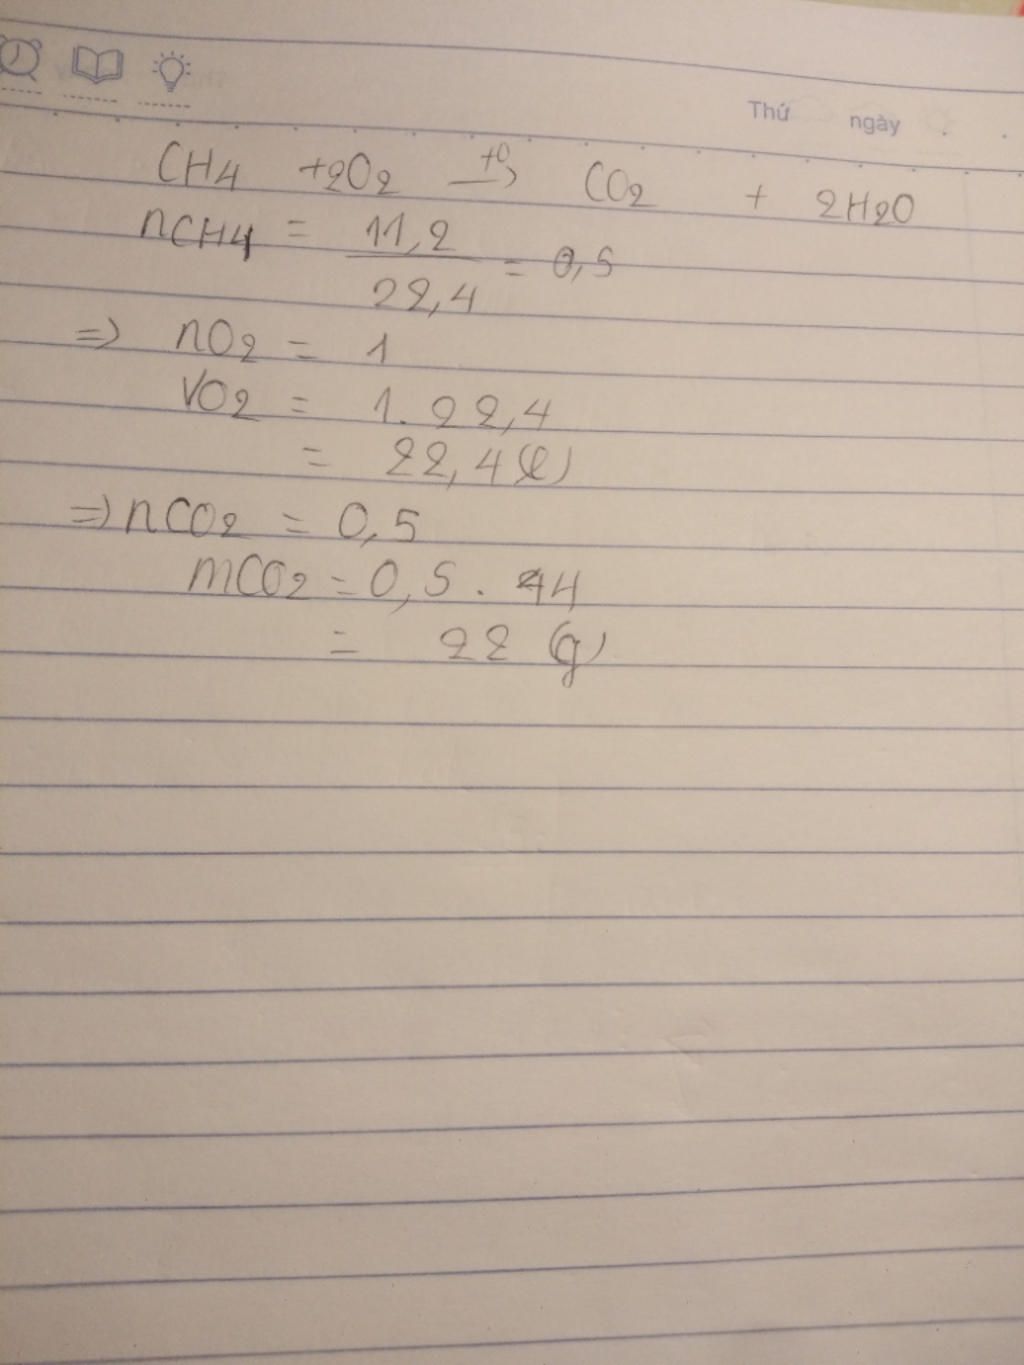 Thứ ngày
CH4 +2O2 t0→ CO2 + 2H2O
nCH4 = 11,2 / 22,4 = 0,5
=> nO2 = 1
VO2 = 1.22,4
= 22,4 (l)
=> nCO2 = 0,5
mCO2 = 0,5 . 44
= 22 (g)